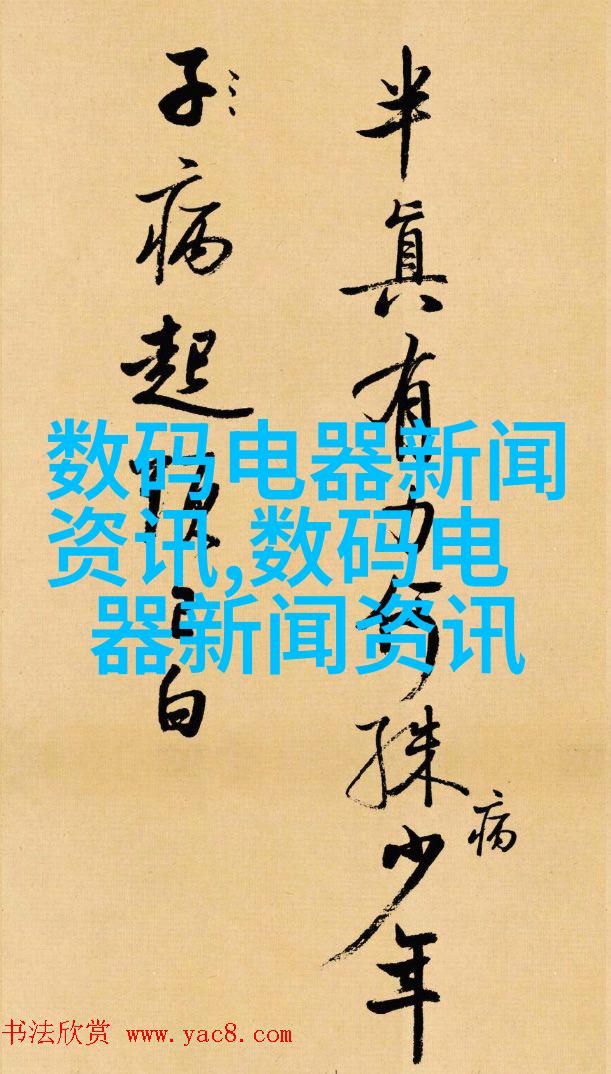 半真有力何殊病少年
子病起頭已白
数码电器新闻
资讯,数码电
器新闻资讯
书法欣赏 www.yac8.com